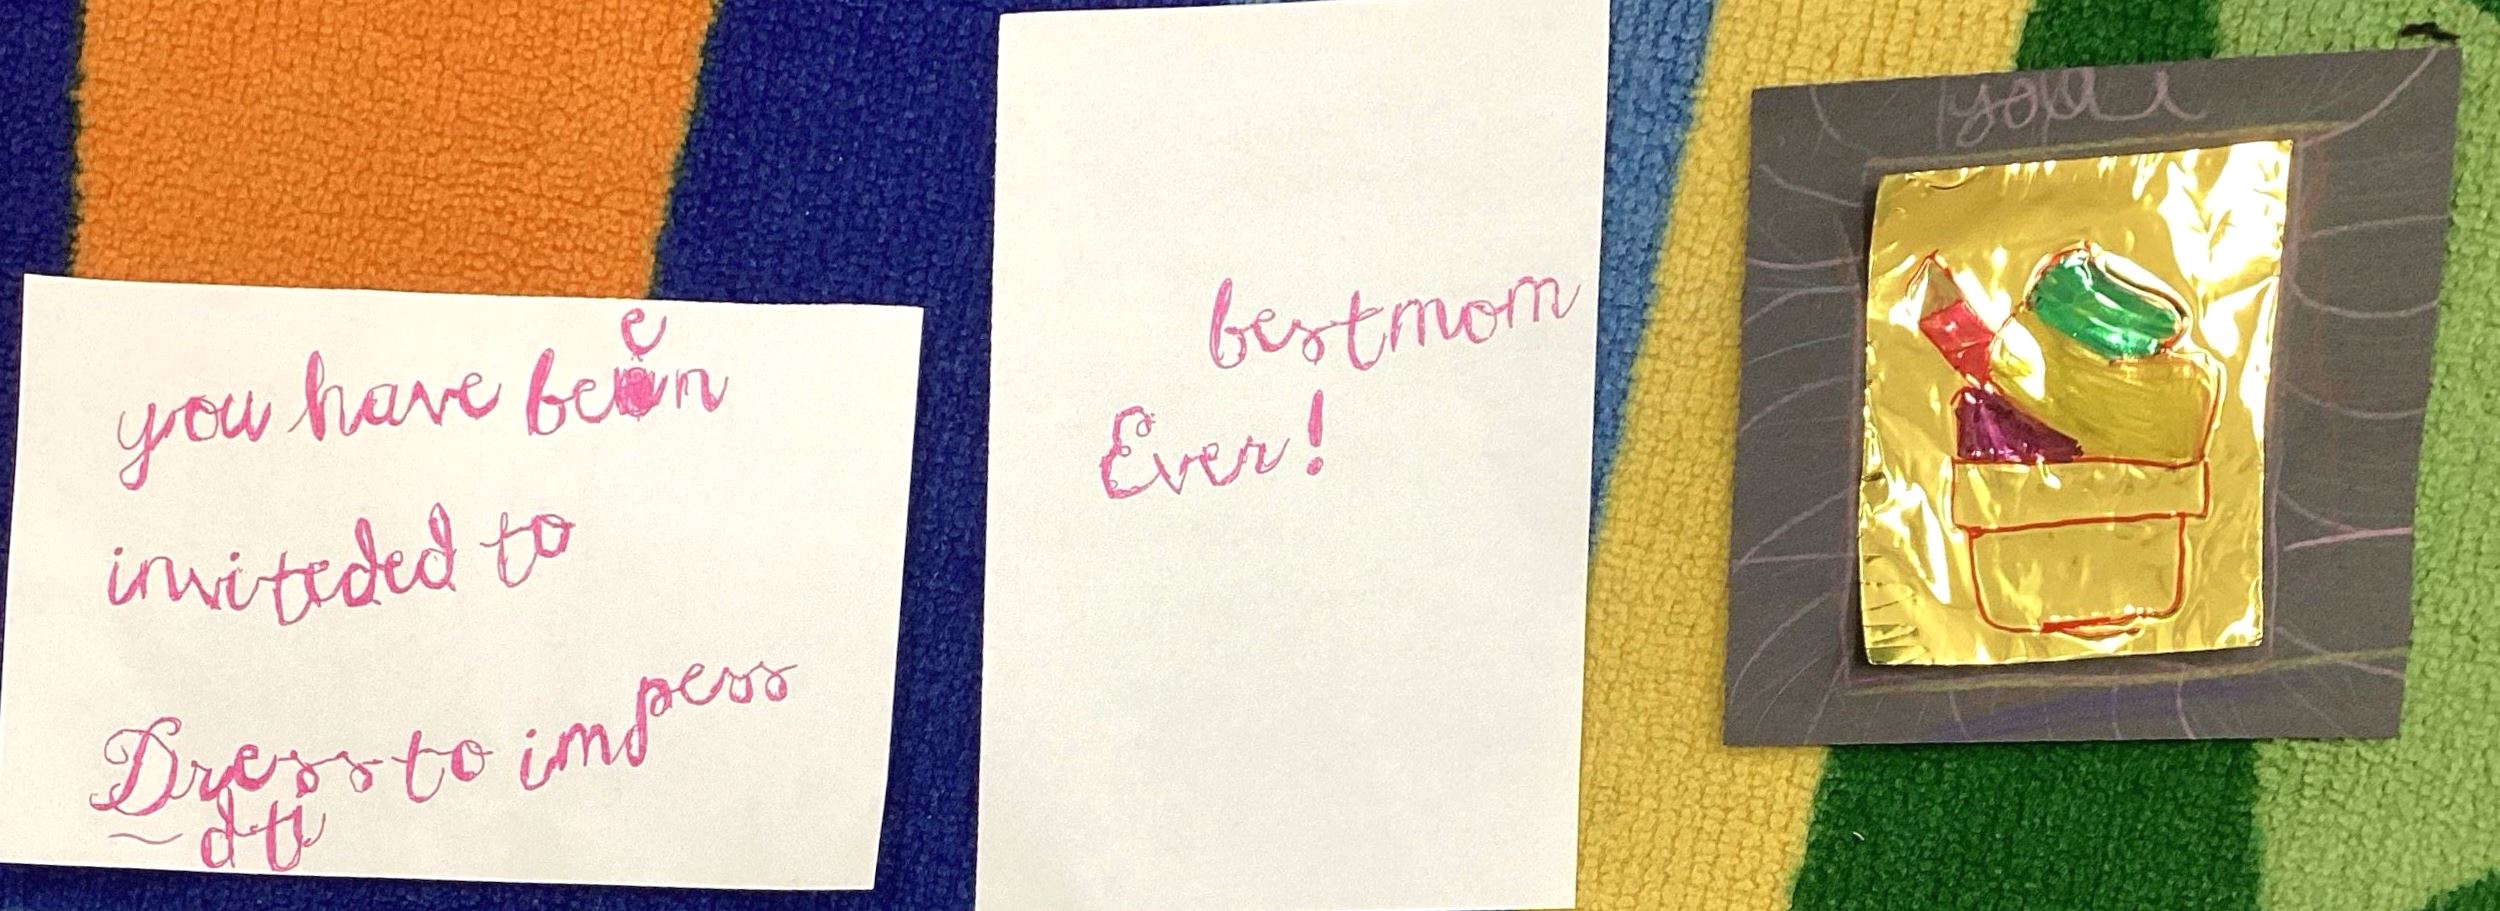 you have been
inviteded to
Dress to impess
dti
bestmom
Ever!